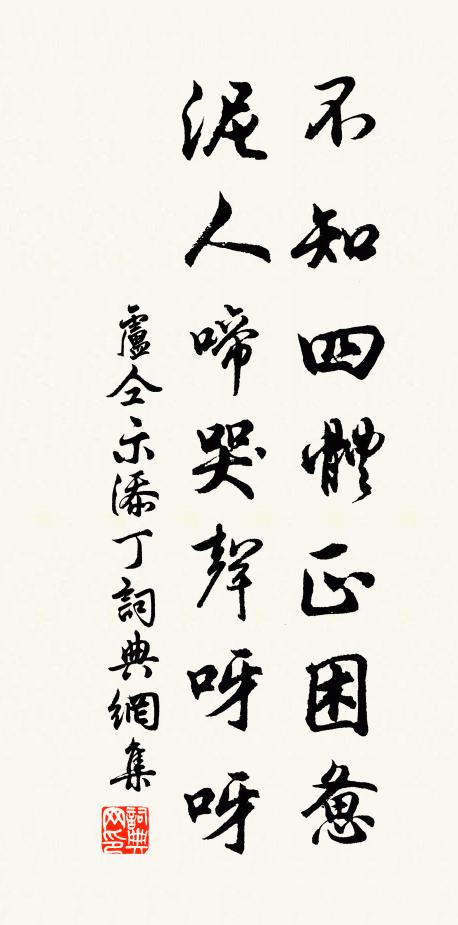 不知四體正困憊
泥人啼哭聲呀呀
盧仝示添丁詞典網集
詞典网印